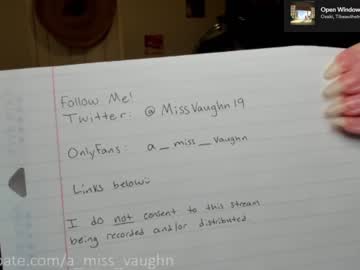 Open Window
Follow Me!
Twitter: @MissVaughn19
OnlyFans: a_miss_Vaughn
Links below:
I do not consent to this stream
being recorded and/or distributed
bate.com/a_miss_vaughn